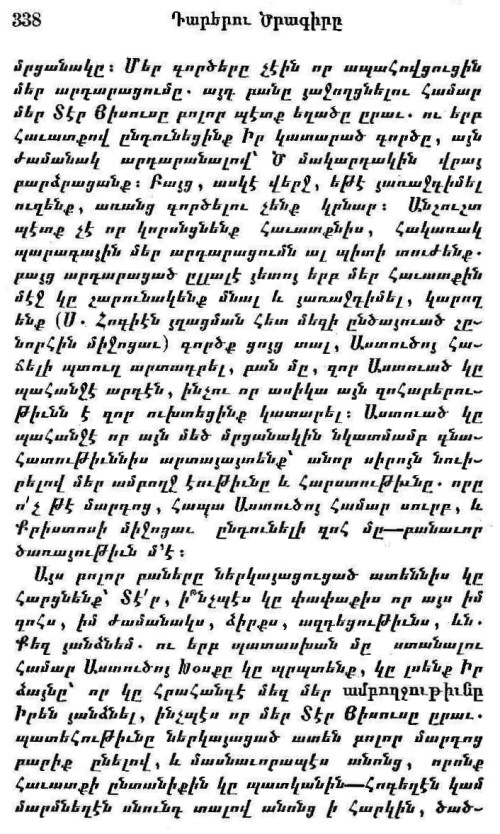 338 Դարերու Ծրագիրը
մրցանակը։ Մեր գործերը չէին որ ապահովցուցին
մեր արդարացումը. այդ բանը յաջողցնելու համար
մեր Տէր Յիսուսը բոլոր պէտք եղածը ըրաւ. ու երբ
հաւատքով ընդունեցինք Իր կատարած գործը, այն
ժամանակ արդարանալով՝ Ծ մակարդակին վրայ
բարձրացանք։ Բայց, ասկէ վերջ, եթէ յառաջդիմել
ուզենք, առանց գործելու չենք կրնար։ Անշուշտ
պէտք չէ որ կորսնցնենք հաւատքնիս, հակառակ
պարագային մեր արդարացումն ալ պիտի տուժենք.
բայց արդարացած ըլլալէ յետոյ երբ մեր հաւատքին
մէջ կը շարունակենք մնալ և յառաջդիմել, կարող
ենք (Ս. Հոգիէն յղացման հետ մեզի ընծայուած շը-
նորհին միջոցաւ) գործք ցոյց տալ, Աստուծոյ հա-
ճելի պտուղ արտադրել, բան մը, զոր Աստուած կը
պահանջէ արդէն, ինչու որ ասիկա այն զոհաբերու-
թիւնն է զոր ուխտեցինք կատարել։ Աստուած կը
պահանջէ որ այն մեծ մրցանակին նկատմամբ գնա-
հատութիւննիս արտայայտենք՝ անոր սիրոյն նուի-
րելով մեր ամբողջ էութիւնը և հարստութիւնը. որը
ո՛չ թէ մարդոց, հապա Աստուծոյ համար սուրբ, և
Քրիստոսի միջոցաւ ընդունելի զոհ մը—բանաւոր
ծառայութիւն մ՚է։
Այս բոլոր բաները ներկայացուցած ատեննիս կը
հարցնենք՝ Տէ՛ր, ի՞նչպէս կը փափաքիս որ այս իմ
զոհս, իմ ժամանակս, ձիրքս, ազդեցութիւնս, ևն.
Քեզ յանձնեմ. ու երբ պատասխան մը ստանալու
համար Աստուծոյ Խօսքը կը պրպտենք, կը լսենք Իր
ձայնը՝ որ կը հրահանգէ մեզ մեր ամբողջութիւնը
Իրեն յանձնել, ինչպէս որ մեր Տէր Յիսուսը ըրաւ.
պատեհութիւնը ներկայացած ատեն բոլոր մարդոց
բարիք ընելով, և մասնաւորապէս անոնց, որոնք
հաւատքի ընտանիքին կը պատկանին—հոգեղէն կամ
մարմնեղէն սնունդ տալով անոնց ի հարկին, ծած-